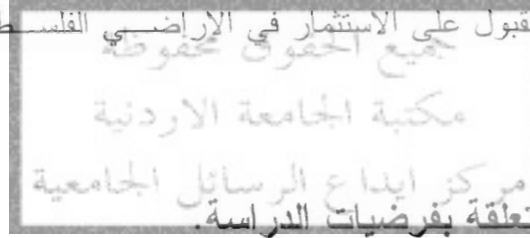 قبول على الاستثمار في الاراضي
جميع الحقوق محفوظة
مكتبة الجامعة الاردنية
مركز ايداع الرسائل الجامعية
بفرضيات الدراسة.